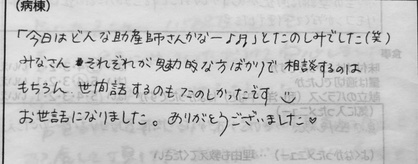 (病棟)
「今日はどんな助産師さんかなー♪♬」とたのしみでした(笑)
みなさん それぞれが魅力的な方ばかりで 相談するのは
もちろん 世間話するのも たのしかったです
お世話になりました。ありがとうございました♡